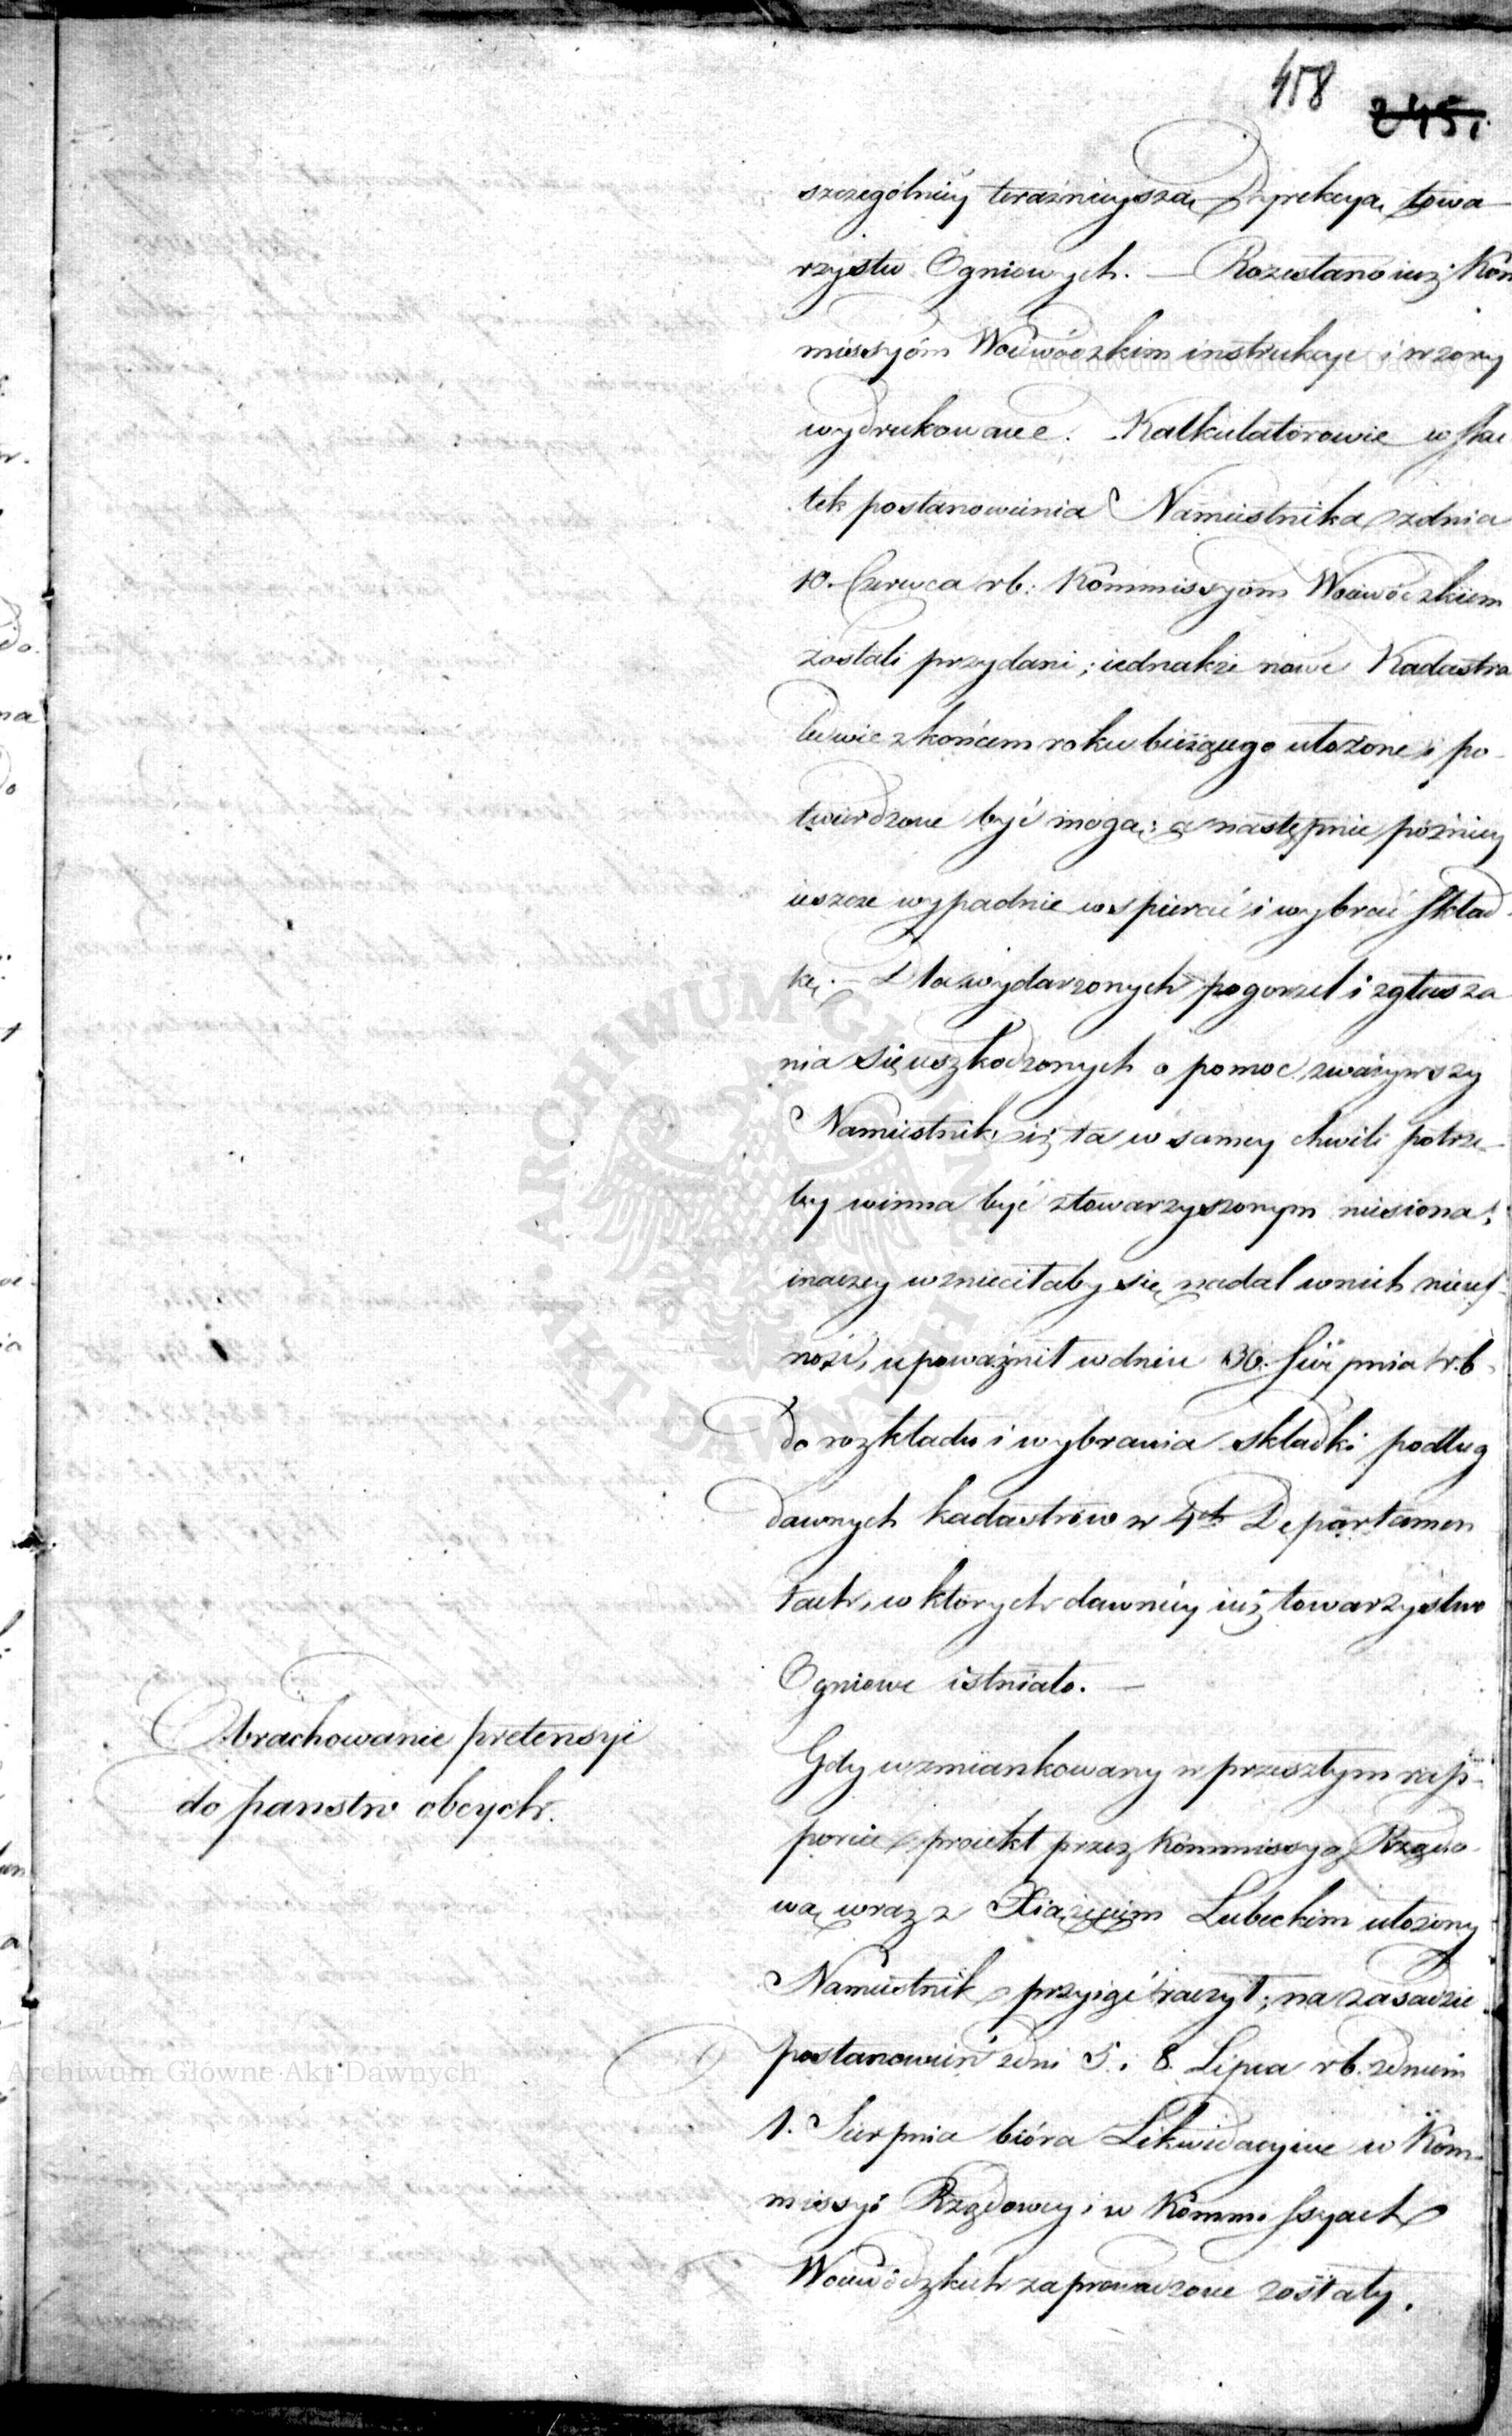 458
245.
szczególniey teraźnieyszą Dyrekcyą towa-
rzystw Ogniowych. — Rozesłano iuż Kom
missyóm Woiewódzkim instrukcye i wzory
wydrukowane. Kalkulatorowie w sku
tek postanowienia Namiestnika z dnia
10. Czerwca rb: Kommissyóm Woiewódzkiem
zostali przydani; iednakże nowe Kadastra
ledwie z końcem roku bieżącego ułożone i po-
twierdzone być mogą; a następnie pózniey
ieszcze wypadnie wspierać i wybrać skład-
kę. — Dla wydarzonych pogorzel i zgłasza
nia się uszkodzonych o pomoc, zważywszy
Namiestnik, iż ta w samey chwili potrze-
by winna być stowarzyszonym niesiona;
inaczey wznieciłaby się nadal w nich nieuf-
ność, upoważnił w dniu 30. Sierpnia r.b.
do rozkładu i wybrania składki podług
dawnych kadastrów w 4ch Departamen
tach, w których dawniey iuż towarzystwo
Ogniowe istniało. —
Obrachowanie pretensyi
do państw obcych.
Gdy wzmiankowany w przeszłym rap-
porcie proiekt przez Kommissyą Rządo-
wą wraz z Xiążęciem Lubeckim ułożony
Namiestnik przyiąć raczył; na zasadzie
postanowień z dni 5. i 8. Lipca rb. z dniem
1. Sierpnia bióra Likwidacyine w Kom-
missyi Rządowey i w Kommissyach
Woiewódzkich zaprowadzone zostały.
Archiwum Główne Akt Dawnych
Archiwum Główne Akt Dawnych
ARCHIWUM GŁÓWNE AKT DAWNYCH